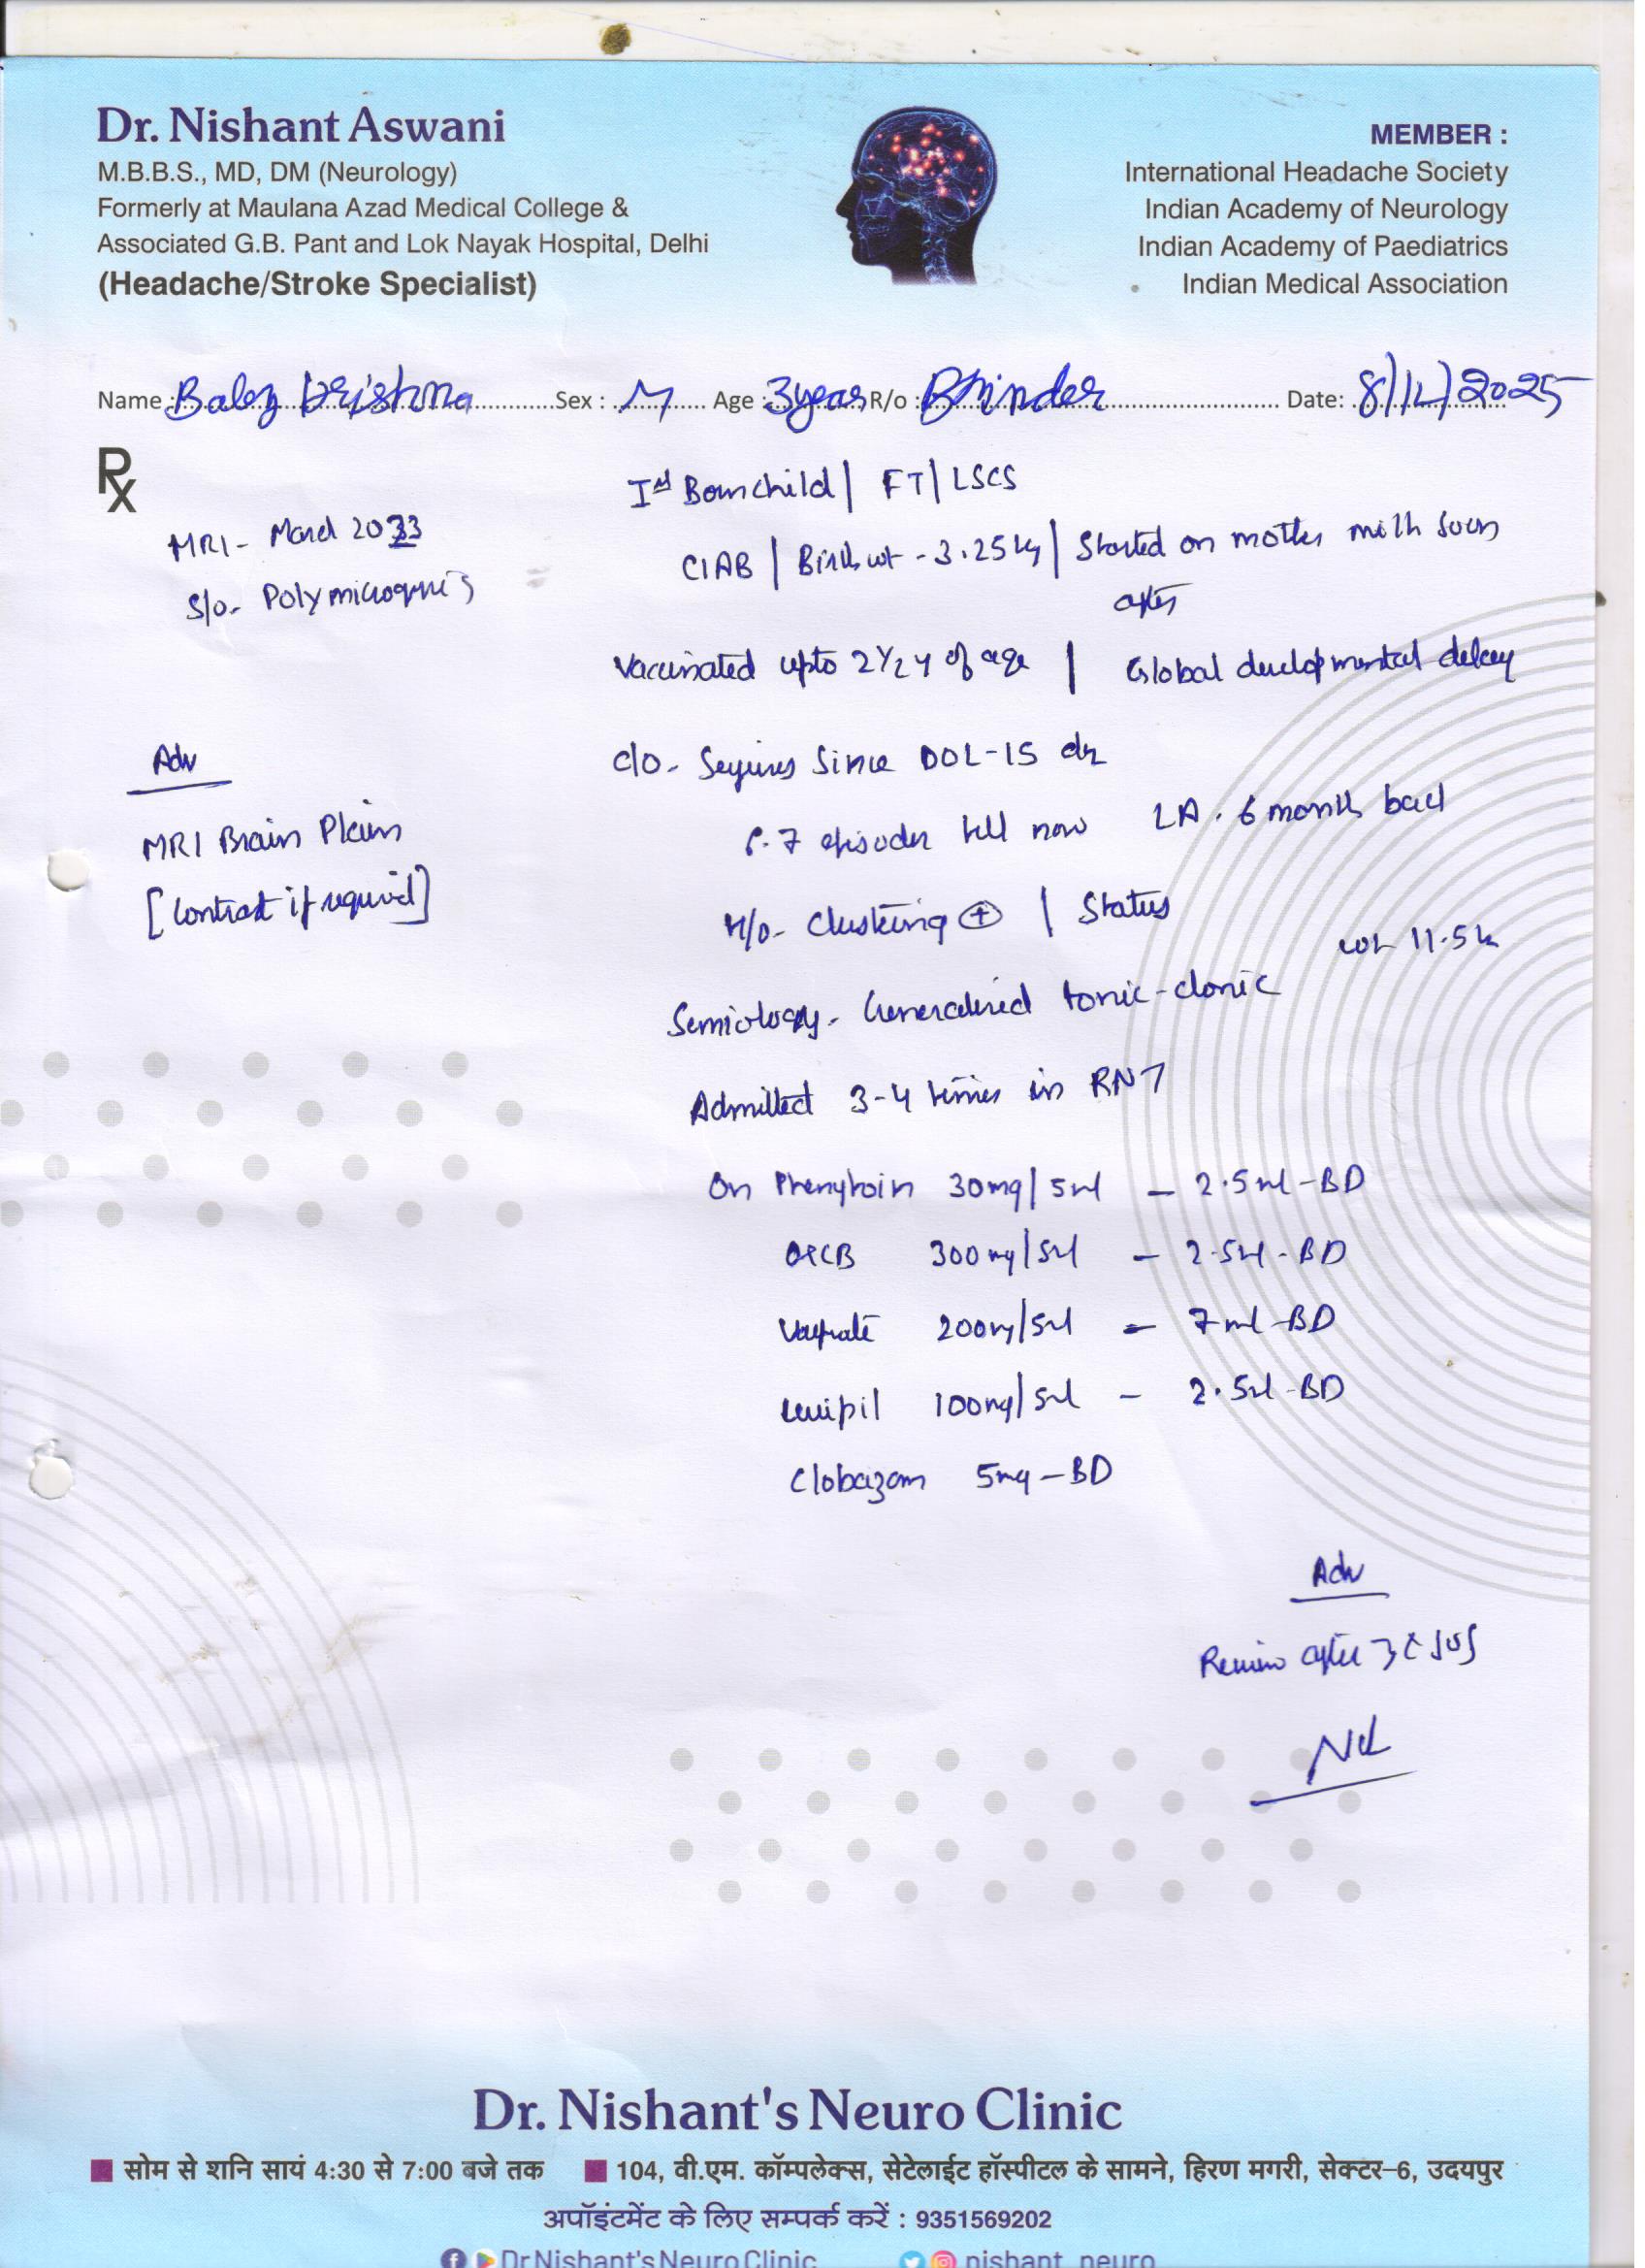 Dr. Nishant Aswani
M.B.B.S., MD, DM (Neurology)
Formerly at Maulana Azad Medical College &
Associated G.B. Pant and Lok Nayak Hospital, Delhi
(Headache/Stroke Specialist)
MEMBER :
International Headache Society
Indian Academy of Neurology
Indian Academy of Paediatrics
Indian Medical Association
Name : Baby Krishna Sex : M Age : 3years R/o : Bhinder Date: 8/12/2025
Rx
MRI - March 2023
S/o - Polymicrogyris
Adv
MRI Brain Plain
[Contrast if required]
Ist Born child | FT | LSCS
CIAB | Birth wt - 3.25 kg | Started on mother milk soon
after
Vaccinated upto 2 1/2 y of age | Global developmental delay
c/o - Seizures Since DOL-15
6-7 episodes till now LA. 6 month back
H/o - Clustering ⊕ | Status
wt 11.5k
Semiology - Generalised tonic-clonic
Admitted 3-4 times in RNT
On Phenytoin 30mg/5ml - 2.5ml - BD
OXCB 300mg/5ml - 2.5ml - BD
Valprate 200mg/5ml - 7ml - BD
Levipil 100mg/5ml - 2.5ml - BD
Clobazam 5mg - BD
Adv
Review after SOS
Dr. Nishant's Neuro Clinic
सोम से शनि सायं 4:30 से 7:00 बजे तक 104, वी.एम. कॉम्पलेक्स, सेटेलाईट हॉस्पीटल के सामने, हिरण मगरी, सेक्टर-6, उदयपुर
अपॉइंटमेंट के लिए सम्पर्क करें : 9351569202
Dr Nishant's Neuro Clinic nishant_neuro